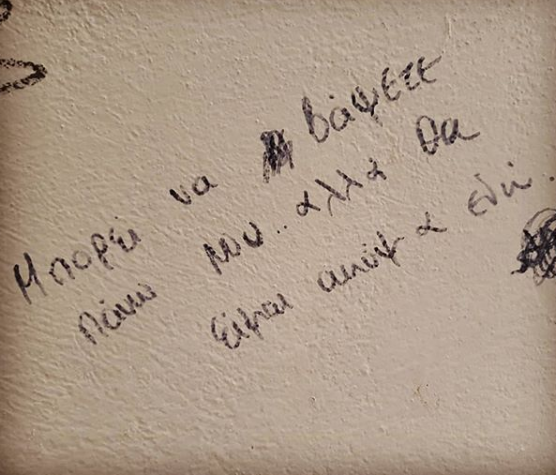 Μπορεί να βάψετε
πάνω μου.. αλλά θα
είμαι ακόμα εδώ.